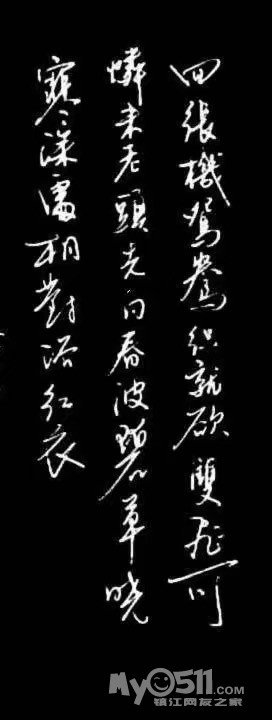 四張機鴛鴦織就欲雙飛可
憐未老頭先白春波碧草曉
寒深處相對浴紅衣
My0511.com
镇江网友之家